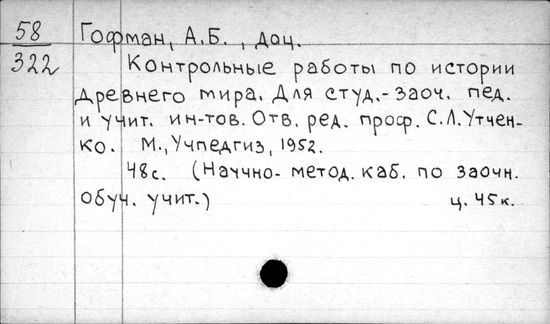 58
322
Гофман, А.Б., доц.
Контрольные работы по истории
древнего мира. Для студ.-заоч. пед.
и учит. ин-тов. Отв. ред. проф. С.Л. Утчен-
ко. М., Учпедгиз, 1952.
48с. (Научно-метод. каб. по заочн.
обуч. учит.) ц. 45к.